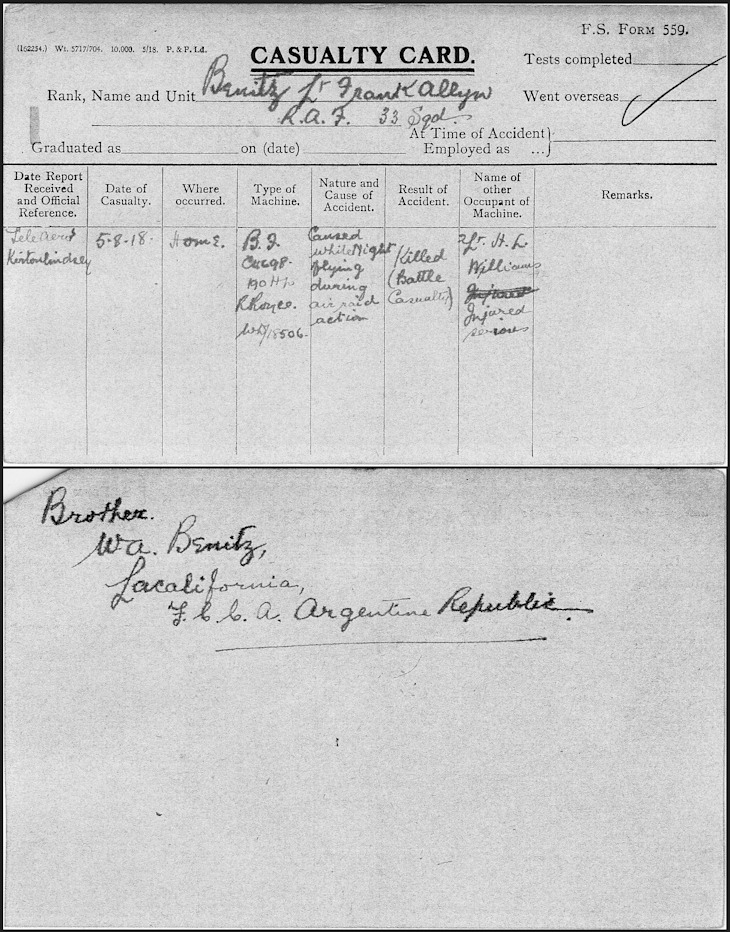 F.S. Form 559.
(162254.) Wt. 5717/704. 10,000. 5/18. P. & P. Ld.
CASUALTY CARD.
Tests completed
Rank, Name and Unit Benitz Lt Frank Allyn
Went overseas
R.A.F. 33 Sqd.
At Time of Accident}
Graduated as on (date) Employed as ...}
Date Report Received and Official Reference.
Date of Casualty.
Where occurred.
Type of Machine.
Nature and Cause of Accident.
Result of Accident.
Name of other Occupant of Machine.
Remarks.
Kirtonlindsey
5-8-18.
Home.
B.F.
C4698.
190 H.P.
R Royce.
WD/18506.
Caused
while Night
flying
during
air raid
action
Killed
(Battle
Casualty)
2/Lt. H. L.
Williams
Injured
Injured
serious
Brother.
W.A. Benitz,
Lacalifornia,
F.C.C.A. Argentine Republic.